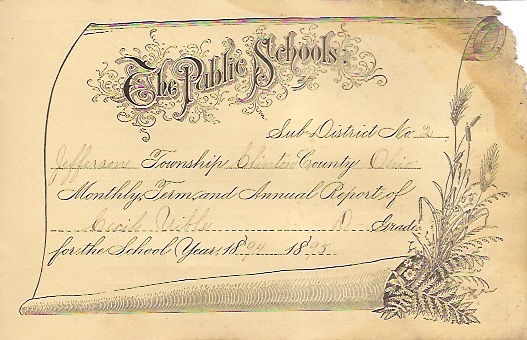 The Public Schools.
Sub-District No. 2
Jefferson Township Clinton County Ohio
Monthly, Term, and Annual Report of
Cecil D Grade
for the School Year, 1894 1895